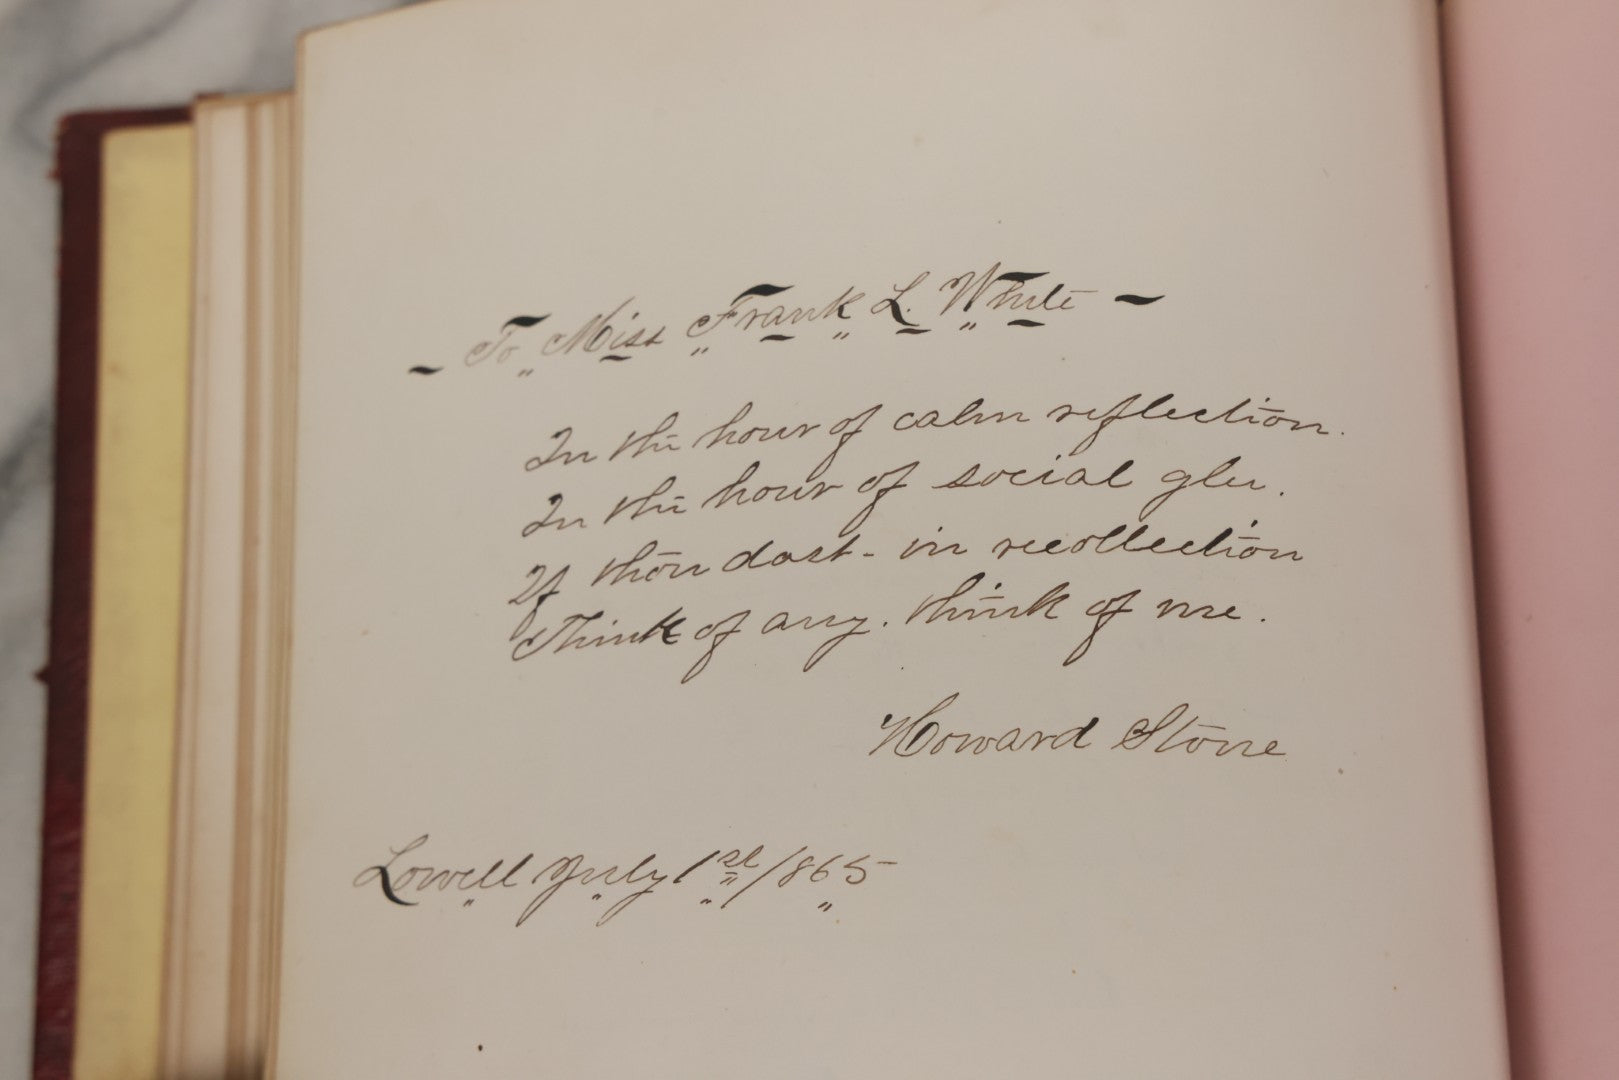 To Miss Frank L. White
In the hour of calm reflection.
In the hour of social glee.
If thou dost - in recollection
Think of any. think of me.
Howard Stone
Lowell July 1st/865